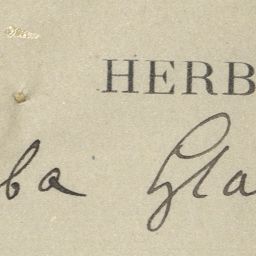 HERB
ba Gla